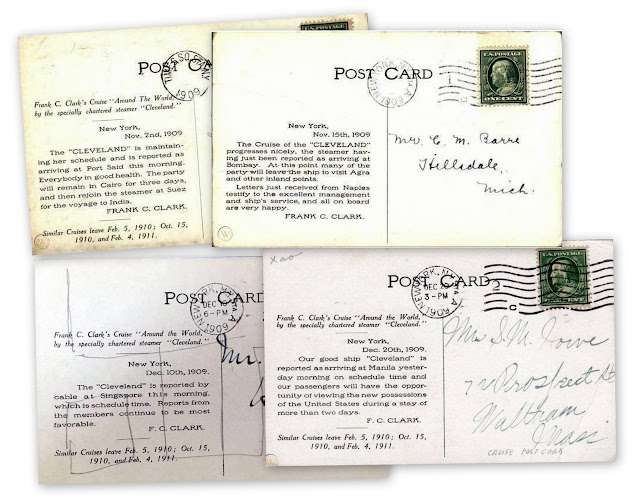 POST CARD
TIMES SQ. STA.
1909
Frank C. Clark's Cruise "Around The World,"
by the specially chartered steamer "Cleveland."
New York,
Nov. 2nd, 1909
The "CLEVELAND" is maintain-
ing her schedule and is reported as
arriving at Port Said this morning.
Everybody in good health. The party
will remain in Cairo for three days,
and then rejoin the steamer at Suez
for the voyage to India.
FRANK C. CLARK.
Similar Cruises leave Feb. 5, 1910; Oct. 15,
1910, and Feb. 4, 1911.
POST CARD
NEW YORK, N.Y.
1909
U.S. POSTAGE
ONE CENT
New York,
Nov. 15th, 1909
The Cruise of the "CLEVELAND"
progresses nicely, the steamer hav-
ing just been reported as arriving at
Bombay. At this point many of the
party will leave the ship to visit Agra
and other inland points.
Letters just received from Naples
testify to the excellent management
and ship's service, and all on board
are very happy.
FRANK C. CLARK.
Mr. C. M. Barre
Hillsdale,
Mich.
POST CARD
NEW YORK, N.Y.
DEC 10
6-PM
1909
Frank C. Clark's Cruise "Around the World,"
by the specially chartered steamer "Cleveland."
New York,
Dec. 10th, 1909.
The "Cleveland" is reported by
cable at Singapore this morning,
which is schedule time. Reports from
the members continue to be most
favorable.
F. C. CLARK.
Similar Cruises leave Feb. 5, 1910; Oct. 15,
1910, and Feb. 4, 1911.
Mr.
xao
POST CARD
NEW YORK, N.Y.
DEC 20
3-PM
1909
2
Frank C. Clark's Cruise "Around the World,"
by the specially chartered steamer "Cleveland."
New York,
Dec. 20th, 1909.
Our good ship "Cleveland" is
reported as arriving at Manila yester-
day morning on schedule time and
our passengers will have the oppor-
tunity of viewing the new possessions
of the United States during a stay of
more than two days.
F. C. CLARK.
Similar Cruises leave Feb. 5, 1910; Oct. 15,
1910, and Feb. 4, 1911.
Mrs S. M. Lowe
72 Prospect St
Waltham
Mass.
CRUISE POST CARD